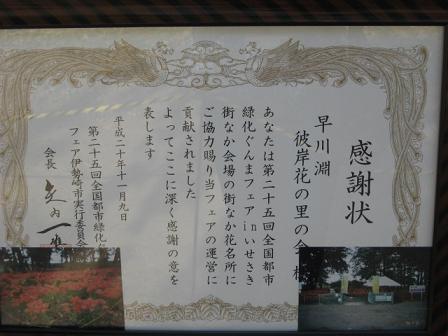 感謝状
早川淵
彼岸花の里の会 様
あなたは第二十五回全国都市
緑化ぐんまフェアinいせさき
街なか会場の街なか花名所に
ご協力賜り当フェアの運営に
貢献されました
よってここに深く感謝の意を
表します
平成二十年十一月九日
第二十五回全国都市緑化
フェア伊勢崎市実行委員会
会長